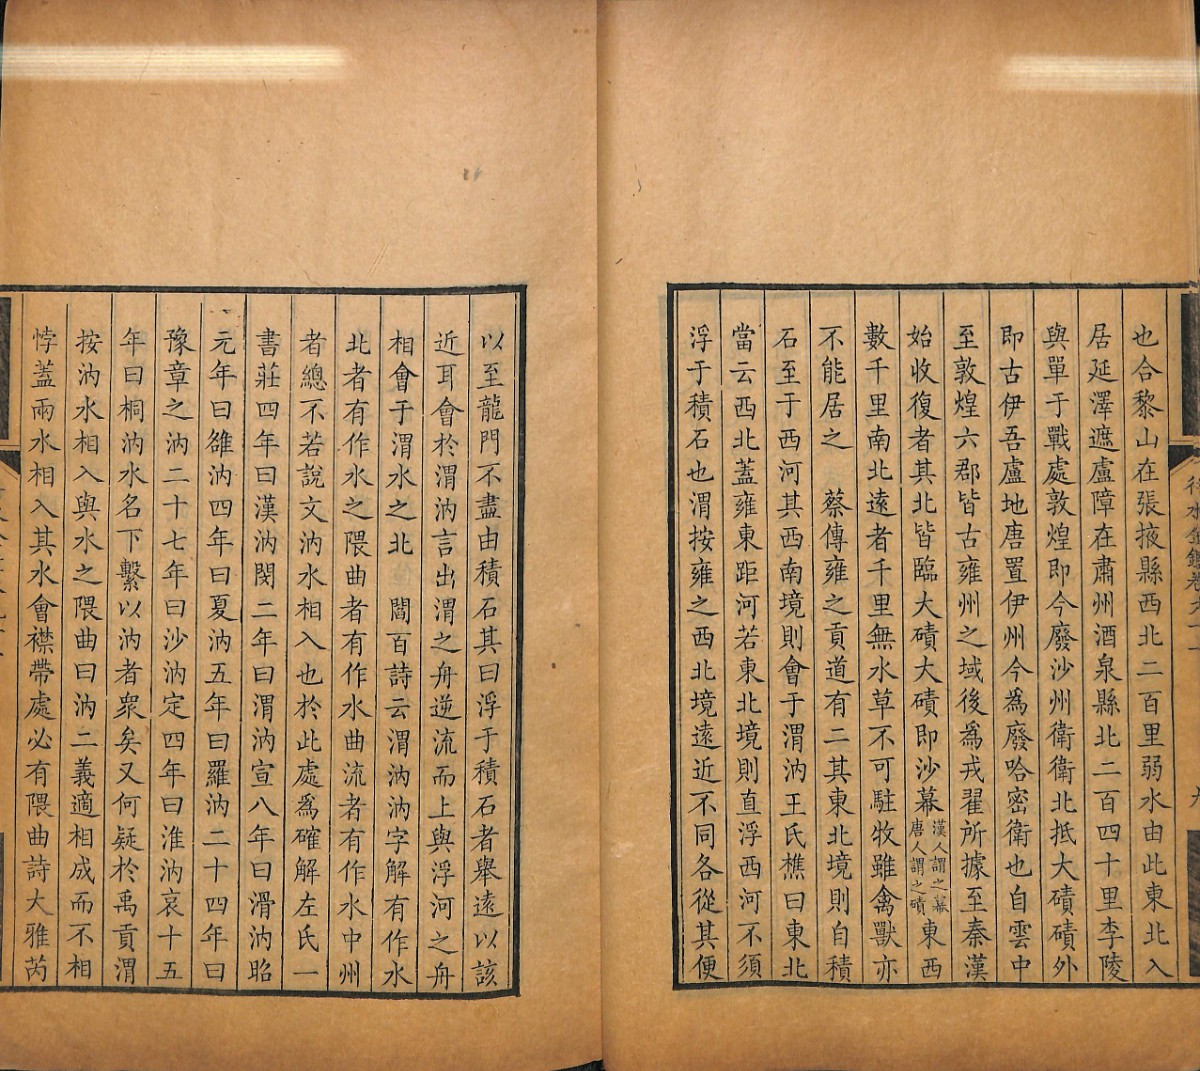 也合黎山在張掖縣西北二百里弱水由此東北入
居延澤遮盧障在肅州酒泉縣北二百四十里李陵
與單于戰處敦煌即今廢沙州衛衛北抵大磧磧外
即古伊吾盧地唐置伊州今為廢哈密衛也自雲中
至敦煌六郡皆古雍州之域後爲戎翟所據至秦漢
始收復者其北皆臨大磧大磧即沙幕漢人謂之幕唐人謂之磧東西
數千里南北遠者千里無水草不可駐牧雖禽獸亦
不能居之 蔡傳雍之貢道有二其東北境則自積
石至于西河其西南境則會于渭汭王氏樵曰東北
當云西北蓋雍東距河若東北境則直浮西河不須
浮于積石也渭按雍之西北境遠近不同各從其便
以至龍門不盡由積石其曰浮于積石者舉遠以該
近耳會於渭汭言出渭之舟逆流而上與浮河之舟
相會于渭水之北 閻百詩云渭汭汭字解有作水
北者有作水之隈曲者有作水曲流者有作水中州
者總不若說文汭水相入也於此處為確解左氏一
書莊四年曰漢汭閔二年曰渭汭宣八年曰滑汭昭
元年曰雒汭四年曰夏汭五年曰羅汭二十四年曰
豫章之汭二十七年曰沙汭定四年曰淮汭哀十五
年曰桐汭水名下繫以汭者衆矣又何疑於禹貢渭
按汭水相入與水之隈曲曰汭二義適相成而不相
悖蓋兩水相入其水會襟帶處必有隈曲詩大雅芮